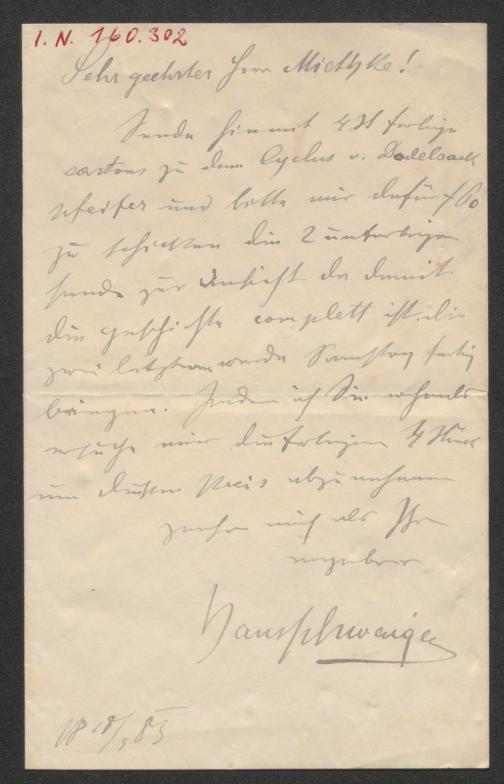 I. N. 160.302
Sehr geehrter Herr Miethke!
Sende hiemit 4 St farbige
cartons zu dem Cyclus v. Dudelsack
pfeifer und bitte mir dafür f 60
zu schicken die 2 unfertigen
sende zur Ansicht da damit
die geschichte complett ist. die
zwei letzteren werde Samstag fertig
bringen. Indem ich Sie nochmals
ersuche mir die farbigen 4 Stück
um diesen Preis abzunehmen
zeichne mich als Ihr
ergebener
Hans Schwaiger
18/3 83